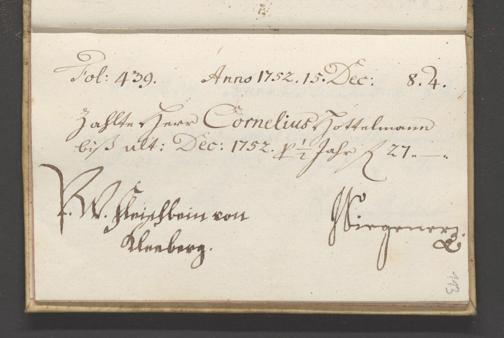 Fol: 439. Anno 1752. 15. Dec: 8.4.
Zahlte Herr Cornelius Hottelmann
biß ult: Dec: 1752. p ½ Jahr f 27.—.
P. W. Fleischbein von
Kleeberg.
113